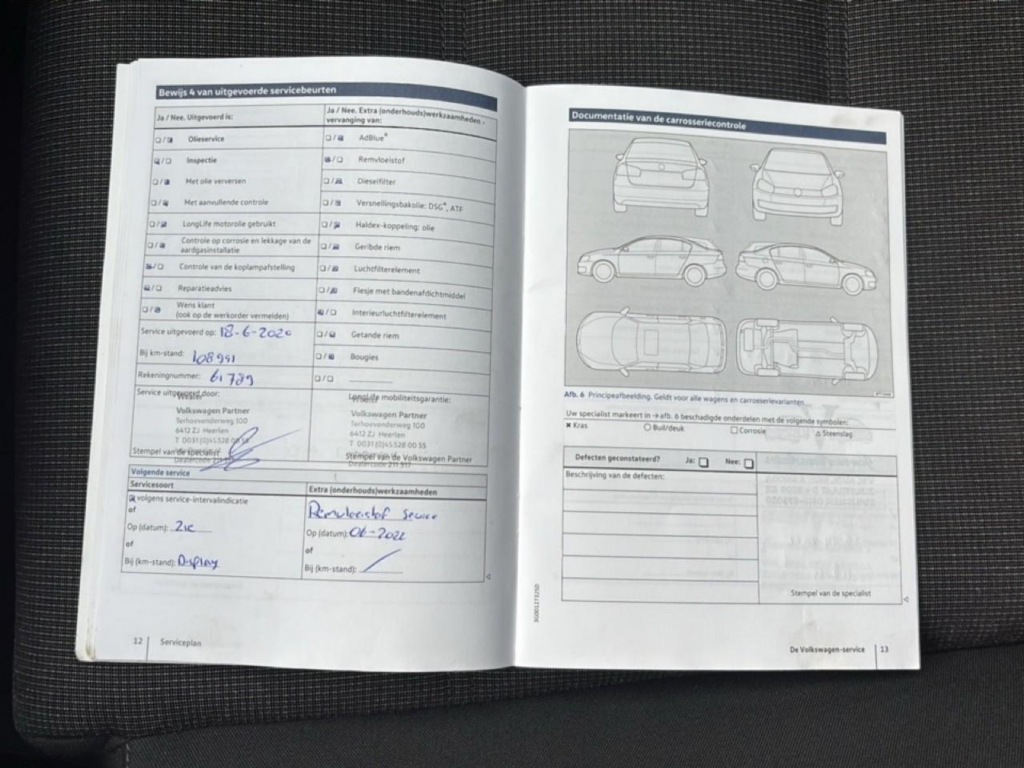 Bewijs 4 van uitgevoerde servicebeurten
Ja / Nee. Uitgevoerd is:
Ja / Nee. Extra (onderhouds)werkzaamheden - vervanging van:
Olieservice
AdBlue®
Inspectie
Remvloeistof
Met olie verversen
Dieselfilter
Met aanvullende controle
Versnellingsbakolie: DSG®, ATF
LongLife motorolie gebruikt
Haldex-koppeling: olie
Controle op corrosie en lekkage van de
aardgasinstallatie
Geribde riem
Controle van de koplampafstelling
Luchtfilterelement
Reparatieadvies
Flesje met bandenafdichtmiddel
Wens klant
(ook op de werkorder vermelden)
Interieurluchtfilterelement
Service uitgevoerd op: 18-6-2020
Getande riem
Bij km-stand: 108991
Bougies
Rekeningnummer: 61789
Service uitgevoerd door:
LongLife mobiliteitsgarantie:
Volkswagen Partner
Terhoevenderweg 100
6412 ZJ Heerlen
T 0031 (0)45 528 00 55
Stempel van de specialist
Volkswagen Partner
Terhoevenderweg 100
6412 ZJ Heerlen
T 0031 (0)45 528 00 55
Stempel van de Volkswagen Partner
Volgende service
Servicesoort
Extra (onderhouds)werkzaamheden
volgens service-intervalindicatie
of
Op (datum): Zie
of
Bij (km-stand): Display
Remvloeistof Service
Op (datum): 06-2022
of
Bij (km-stand):
12 Serviceplan
Documentatie van de carrosseriecontrole
Afb. 6 Principeafbeelding. Geldt voor alle wagens en carrosserievarianten.
Uw specialist markeert in → afb. 6 beschadigde onderdelen met de volgende symbolen:
Kras
Buil/deuk
Corrosie
Steenslag
Defecten geconstateerd? Ja: Nee:
Beschrijving van de defecten:
Stempel van de specialist
De Volkswagen-service 13